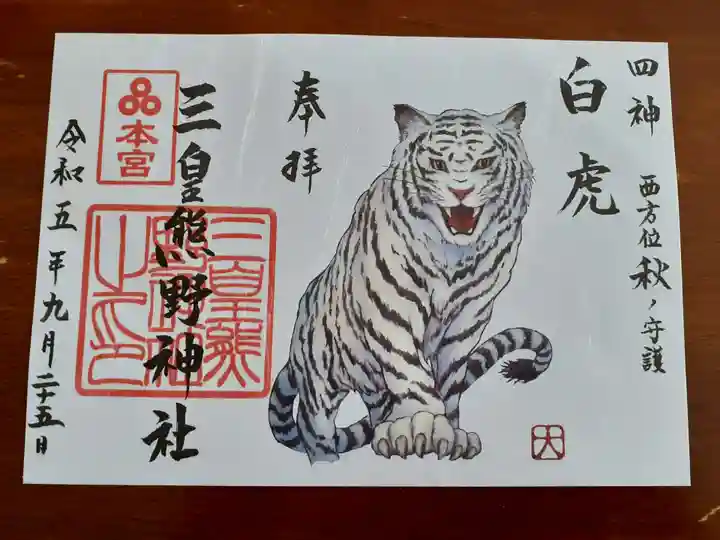 四神
西方位 秋ノ守護
白虎
奉拝
三皇熊野神社
本宮
三皇熊
令和五年九月二十五日